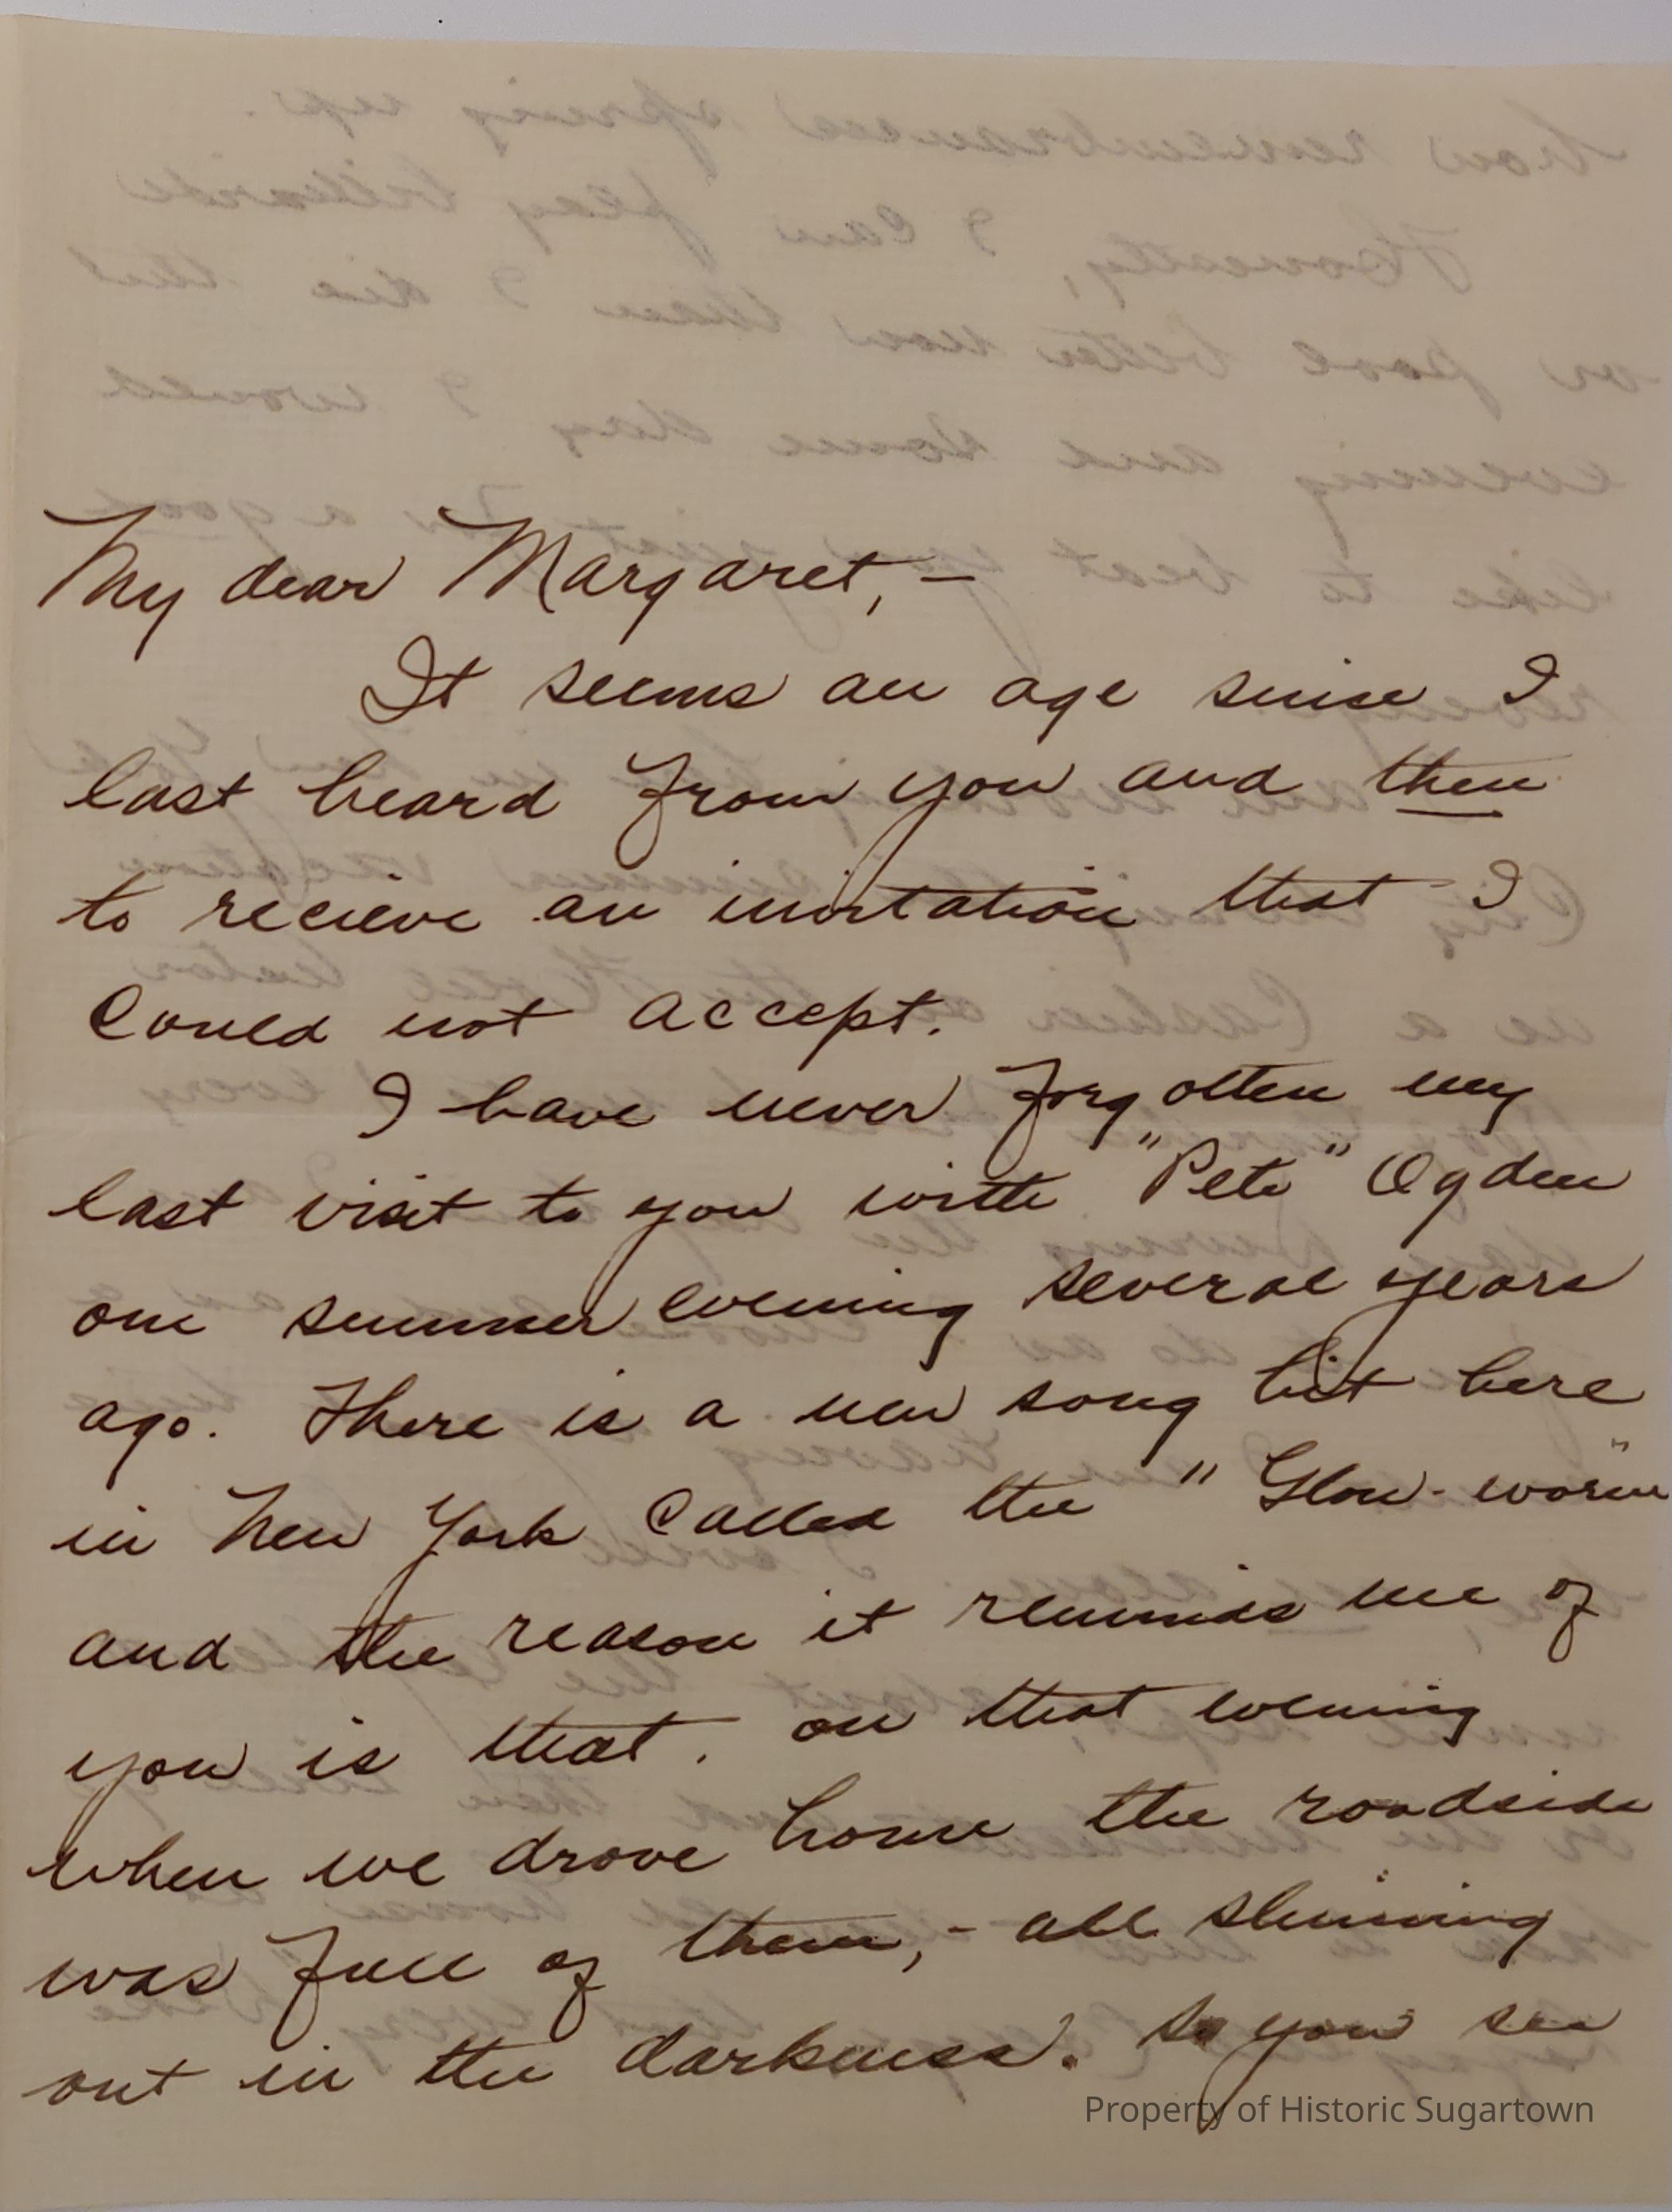 My dear Margaret,—
It seems an age since I
last heard from you and then
to recieve an invitation that I
could not accept.
I have never forgotten my
last visit to you with "Pete" Ogden
one summer evening several years
ago. There is a new song hit here
in New York called the "Glow-worm"
and the reason it reminds me of
you is that. on that evening
when we drove home the roadside
was full of them,- all shining
out in the darkness. So you see
Property of Historic Sugartown